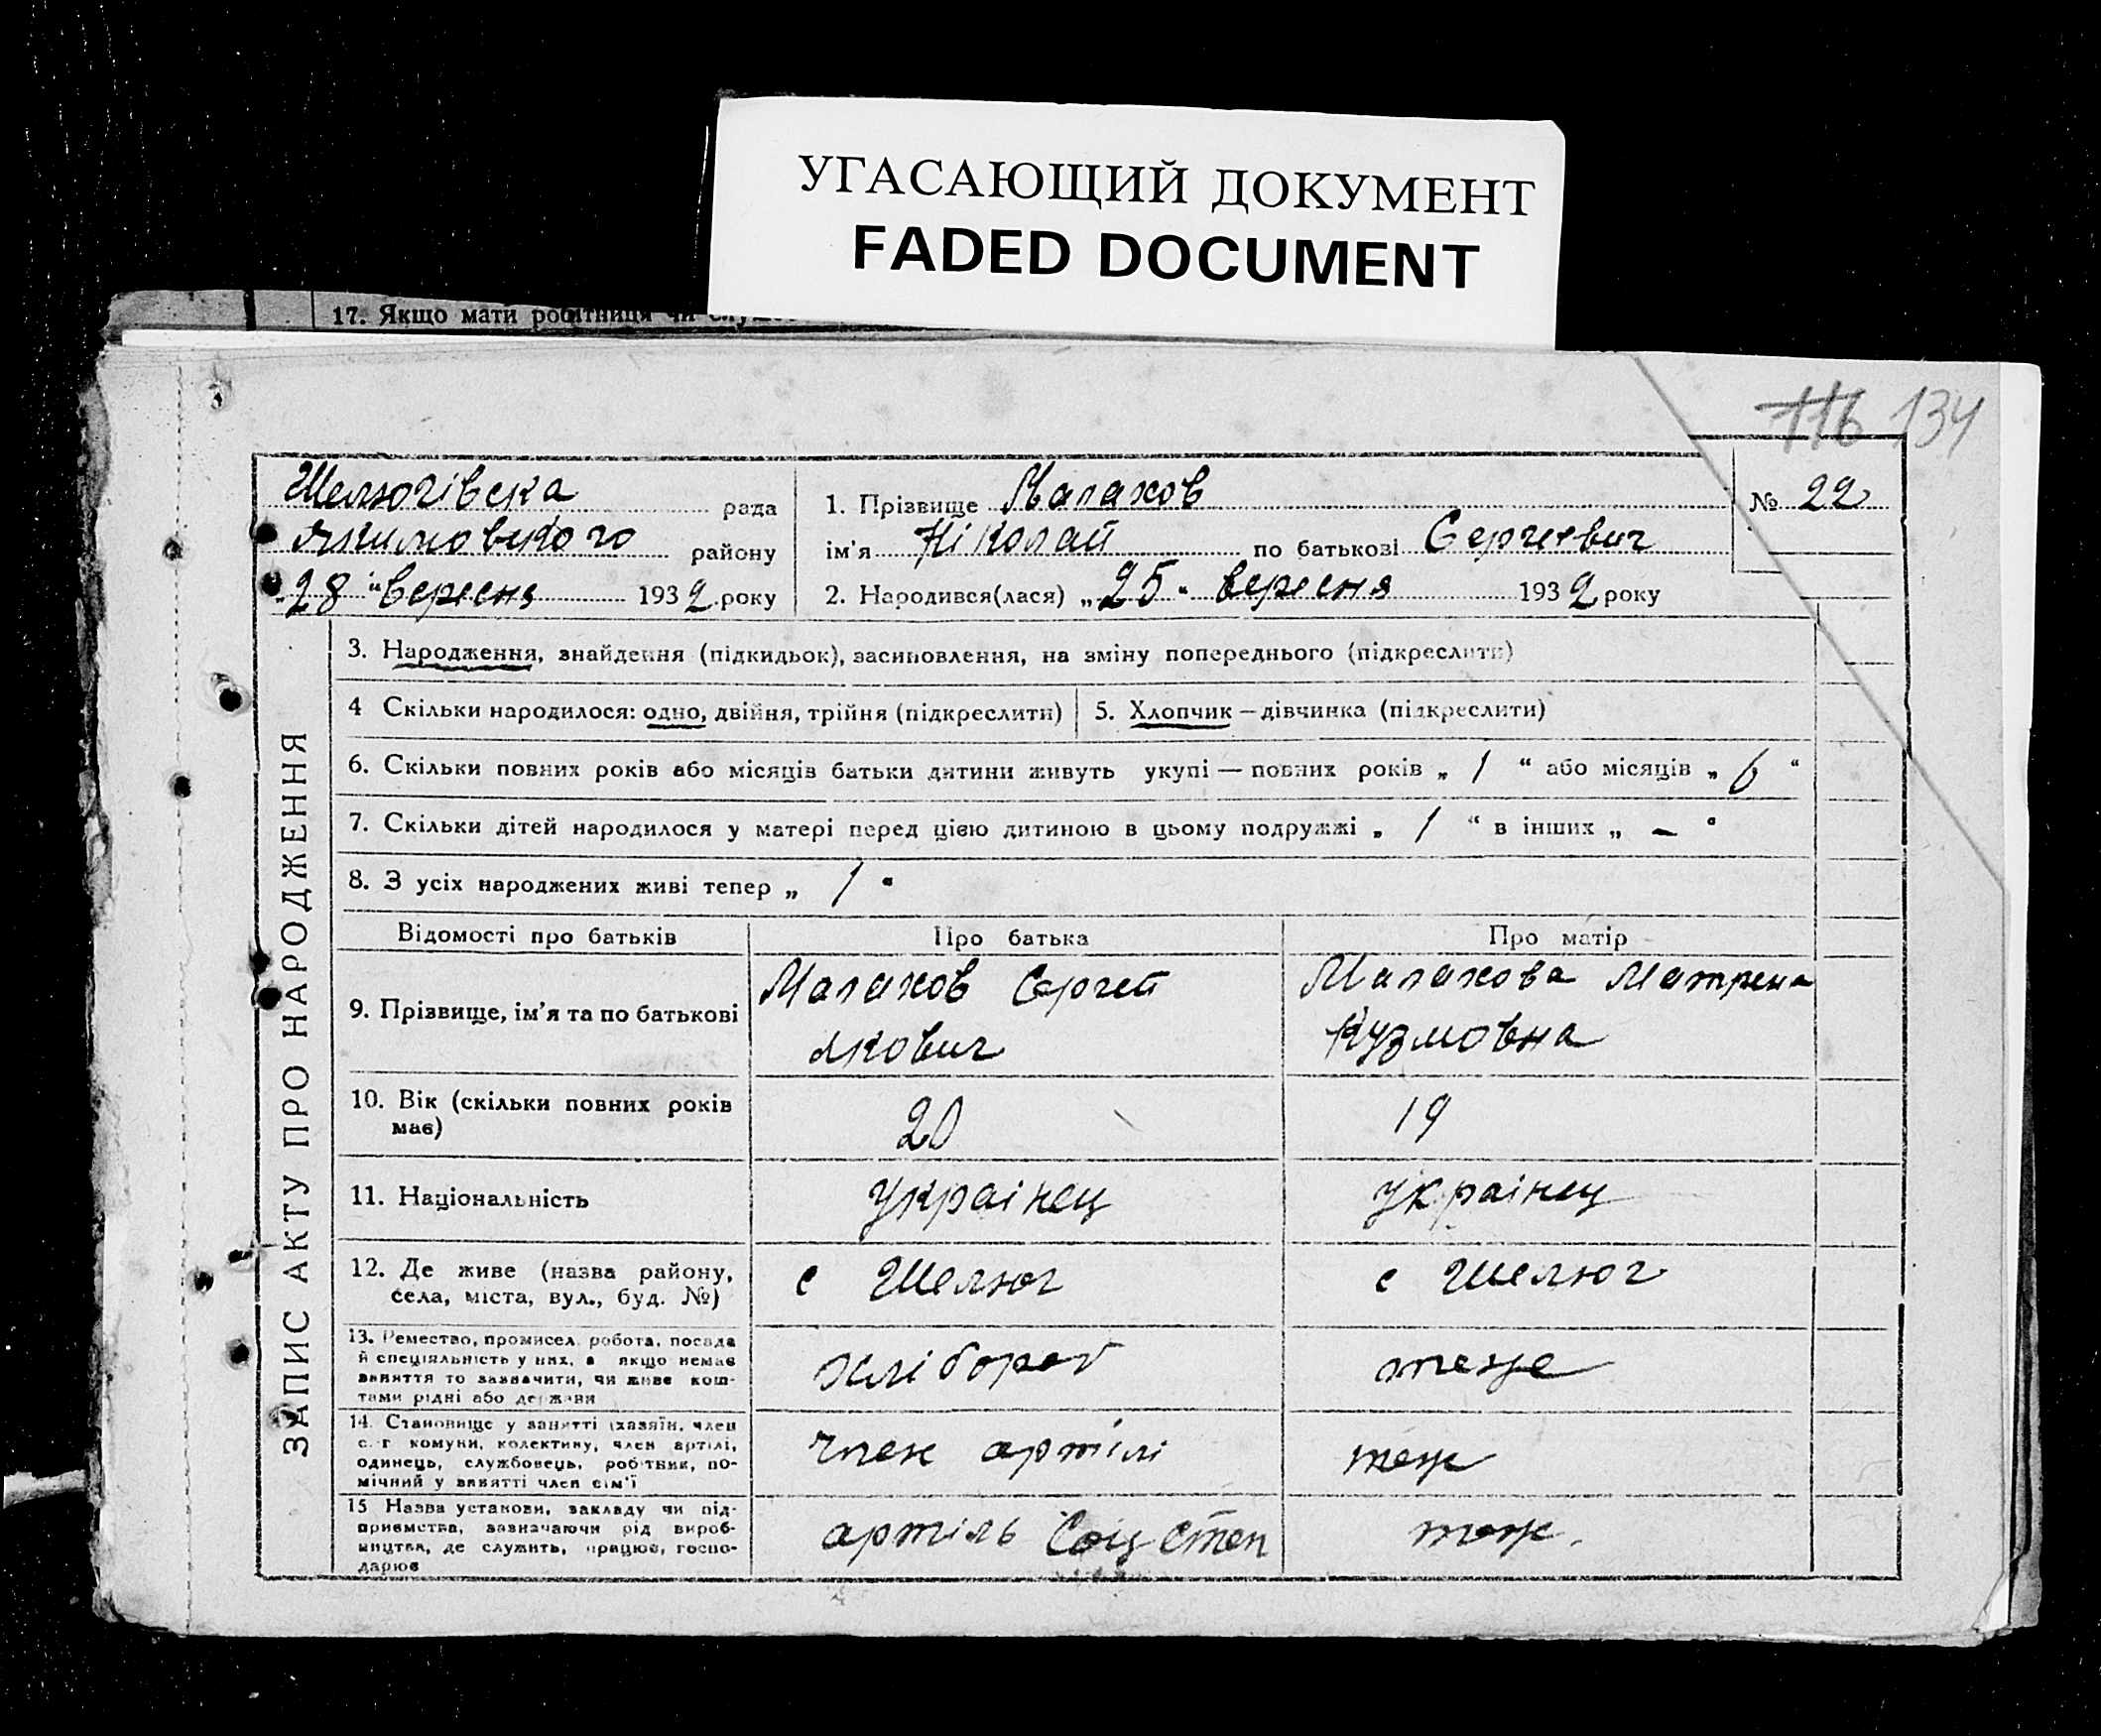 УГАСАЮЩИЙ ДОКУМЕНТ
FADED DOCUMENT
17. Якщо мати робітниця чи
116 134
Шелюгівска рада
Якимовского району
"28" вересня 1932 року
1. Прізвище Малахов
ім'я Ніколай по батькові Сергеевич
2. Народився(лася) „25" вересня 1932 року
№ 22
ЗАПИС АКТУ ПРО НАРОДЖЕННЯ
3. Народження, знайдення (підкидьок), засиновлення, на зміну попереднього (підкреслити)
4 Скільки народилося: одно, двійня, трійня (підкреслити)
5. Хлопчик — дівчинка (підкреслити)
6. Скільки повних років або місяців батьки дитини живуть укупі — повних років „ 1 " або місяців „ 6 "
7. Скільки дітей народилося у матері перед цією дитиною в цьому подружжі „ 1 " в інших „ — "
8. З усіх народжених живі тепер „ 1 "
Відомості про батьків
Про батька
Про матір
9. Прізвище, ім'я та по батькові
Малахов Сергей
Якович
Малахова Матрена
Кузмовна
10. Вік (скільки повних років
має)
20
19
11. Національність
Украінец
украінец
12. Де живе (назва району,
села, міста, вул., буд. №)
с Шелюг
с Шелюг
13. Ремество, промисел, робота, посада
й спеціяльність у них, а якщо немає
заняття то зазначити, чи живе кош-
тами рідні або держави
хлібороб
теже
14. Становище у занятті (хазяїн, член
с.-г. комуни, колективу, член артілі,
одинець, службовець, робітник, по-
мічний у занятті член сім'ї
член артілі
теж
15 Назва установи, закладу чи під-
приємства, зазначаючи рід вироб-
ництва, де служить, працює, госпо-
дарює
артіль Соц Степ
теж.